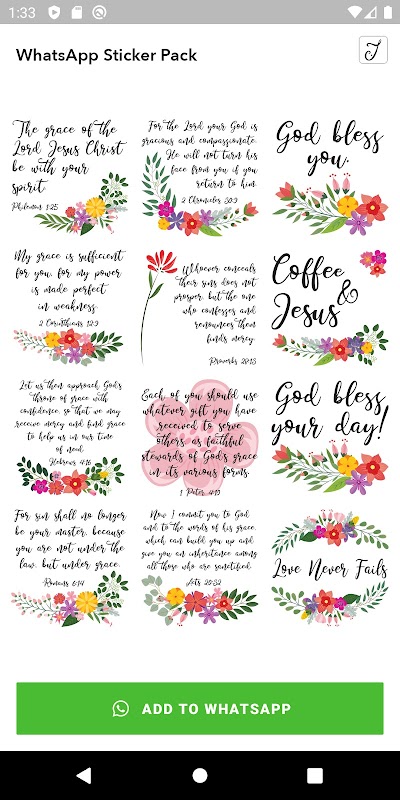 1:33
WhatsApp Sticker Pack
J
The grace of the
Lord Jesus Christ
be with your
spirit.
Philemon 1:25
For the Lord your God is
gracious and compassionate.
He will not turn his
face from you if you
return to him.
2 Chronicles 30:9
God bless
you.
My grace is sufficient
for you, for my power
is made perfect
in weakness.
2 Corinthians 12:9
Whoever conceals
their sins does not
prosper, but the one
who confesses and
renounces them
finds mercy.
Proverbs 28:13
Coffee
&
Jesus
Let us then approach God's
throne of grace with
confidence, so that we may
receive mercy and find grace
to help us in our time
of need.
Hebrews 4:16
Each of you should use
whatever gift you have
received to serve
others, as faithful
stewards of God's grace
in its various forms.
1 Peter 4:10
God bless
your day!
For sin shall no longer
be your master, because
you are not under the
law, but under grace.
Romans 6:14
Now I commit you to God
and to the words of his grace,
which can build you up and
give you an inheritance among
all those who are sanctified.
Acts 20:32
Love Never Fails
ADD TO WHATSAPP